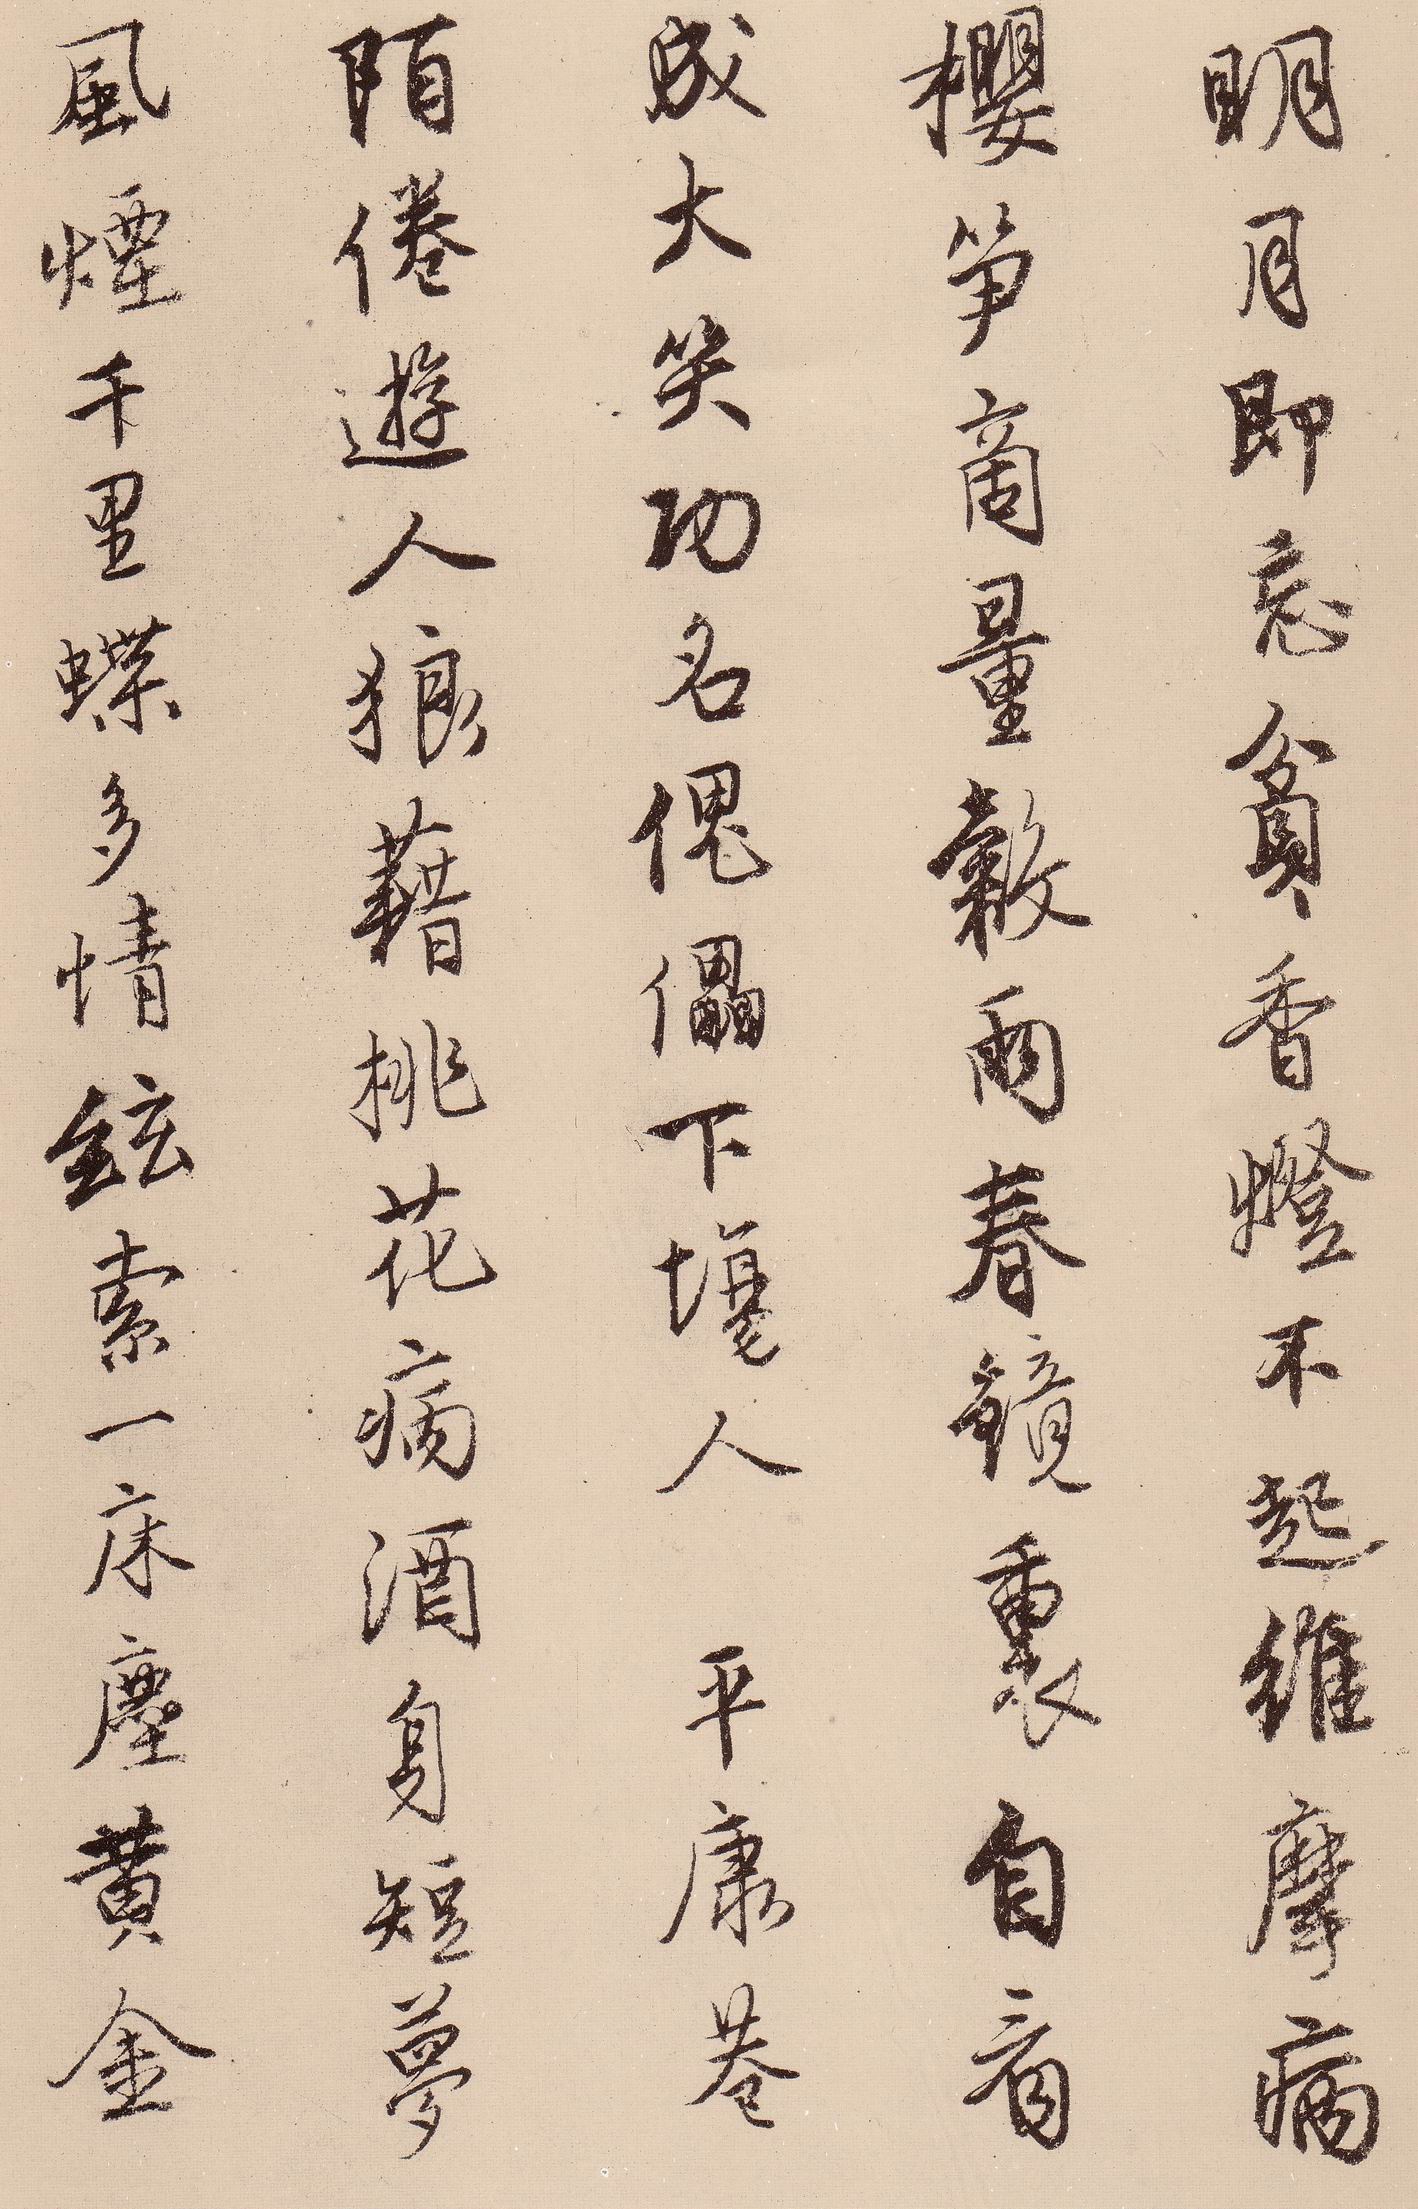 明月即忘貧香燈不起維摩病
櫻筍商量穀雨春鏡裏自看
成大笑功名傀儡下場人 平康巷
陌倦遊人狼藉桃花病酒身短夢
風煙千里蝶多情絃索一床塵黃金